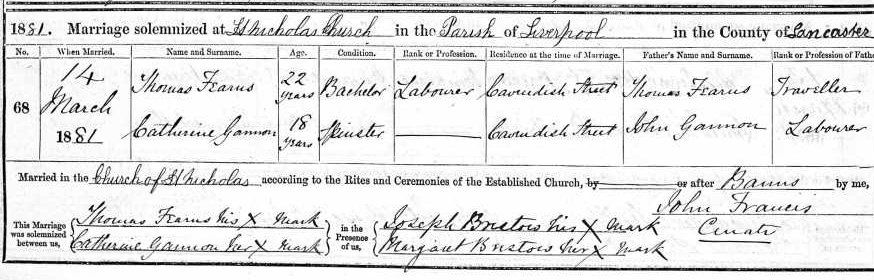 1881. Marriage solemnized at St Nicholas Church in the Parish of Liverpool in the County of Lancaster
No. When Married. Name and Surname. Age. Condition. Rank or Profession. Residence at the time of Marriage. Father's Name and Surname. Rank or Profession of Fathe
68 14 March 1881 Thomas Fearns 22 years Bachelor Labourer Cavendish Street Thomas Fearns Traveller
Catherine Gannon 18 years Spinster Cavendish Street John Gannon Labourer
Married in the Church of St Nicholas according to the Rites and Ceremonies of the Established Church, by or after Banns by me,
John Francis
Curate
This Marriage was solemnized between us, Thomas Fearns his X Mark in the Presence of us, Joseph Bristow his X Mark
Catherine Gannon her X Mark Margaret Bristow her X Mark